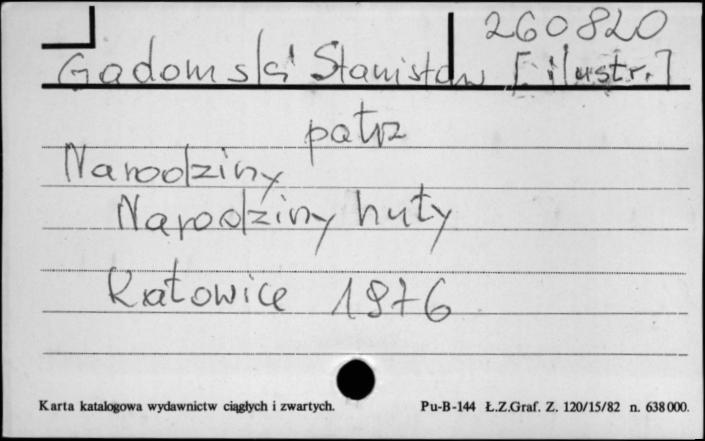 260820
Gadomski Stanisław [ilustr.]
patrz
Narodziny
Narodziny huty
Katowice 1976
Karta katalogowa wydawnictw ciągłych i zwartych. Pu-B-144 Ł.Z.Graf. Z. 120/15/82 n. 638000.